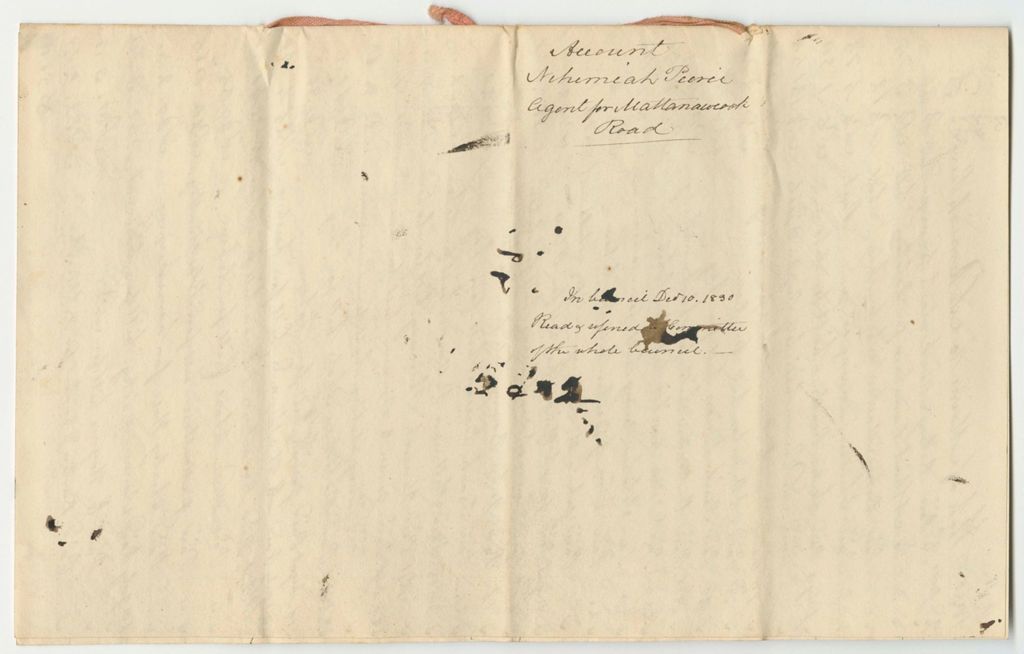 Account
Nehemiah Peirce
Agent for Mattanawcook
Road
In Council Dec 10. 1830
Read & in Committee
of the whole Council.